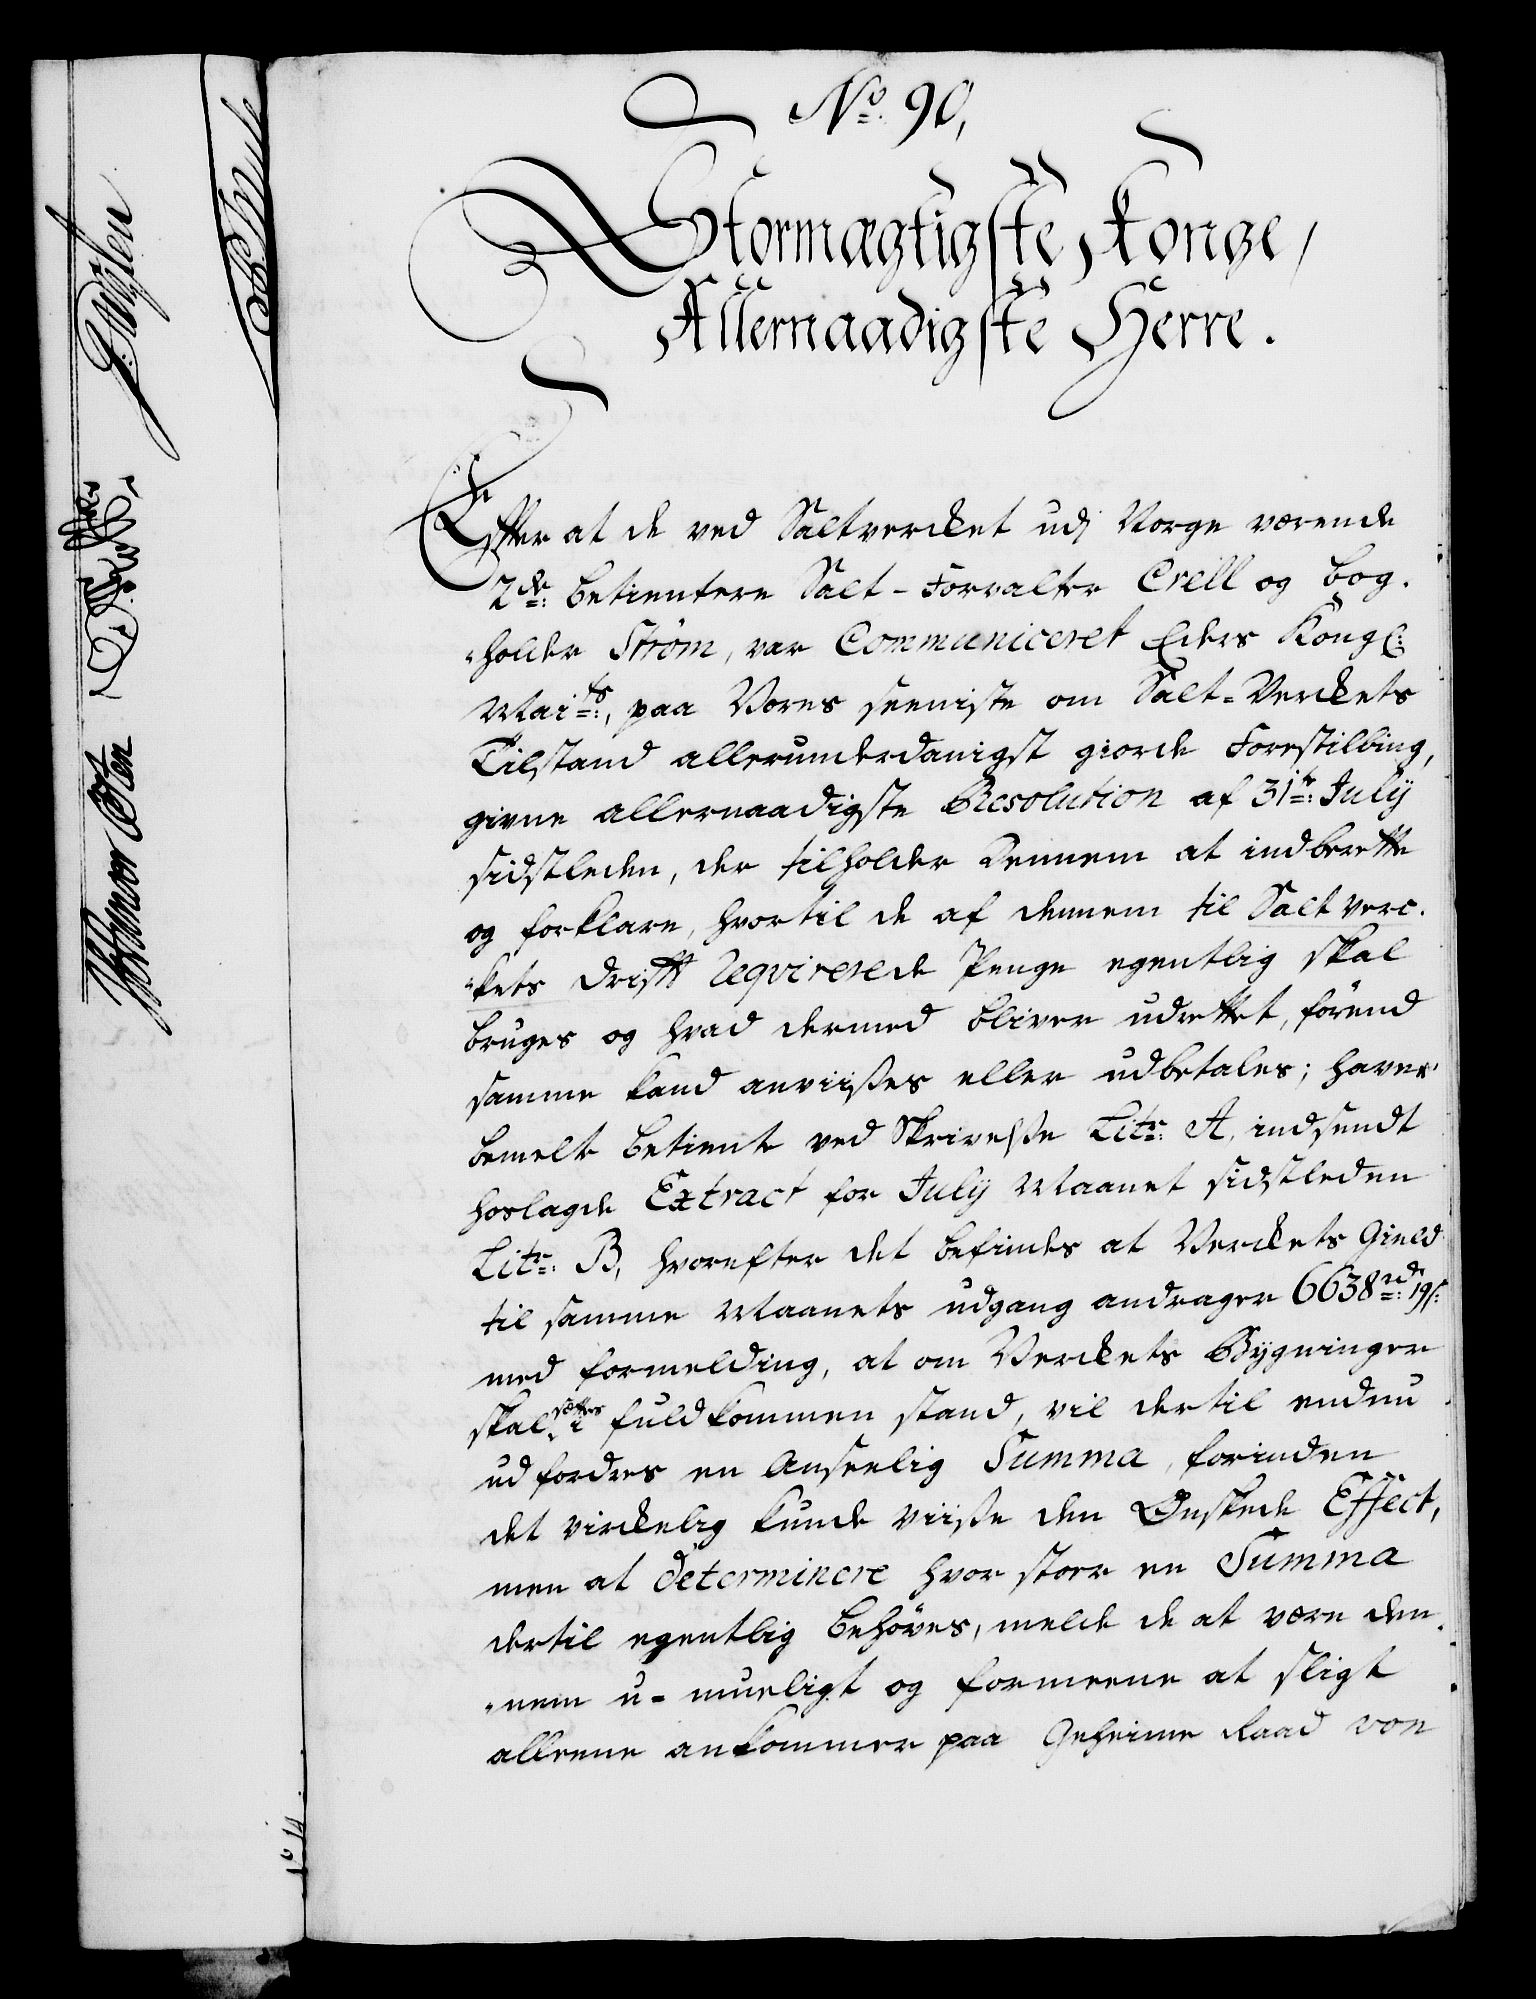 No. 90,
Stormægtigste Konge,
Allernaadigste Herre.
Effter at de ved Saltvercket udj Norge værende
2de: betientere Salt-Forvalter Crell og bog-
holder Strøm, var Communiceret Eders Kongl:
Maits:, paa Vores seeniste om Salt-Verckets
Tilstand allerunderdanigst giorde Forestilling,
givne allernaadigste Resolution af 31te: July
sidstleden, der tilholder dennem at indberette
og forklare, hvortil de af dennem til Saltverc-
kets Drifft reqvirerede Penge egentlig skal
bruges og hvad dermed bliver udrettet, förend
samme kand anviises eller udbetales; haver
bemelte betiente ved Skrivelse Litr: A, indsendt
hoslagde Extract for July Maanet sidstleden
Litr: B, hvorefter det befindes at Verckets Gield
til samme Maanets udgang andrager 6638rd: 19s:
med formelding, at om Verckets Bygninger
skal sættes i fuldkommen stand, vil dertil endnu
udfordres en Anseelig Summa, forinden
det virckelig kunde viise den Ønskede Effect,
men at determinere hvor stoer en Summa
dertil egentlig behöves, melde de at være den-
nem u-mueligt og formeene at sligt
alleene ankommer paa Geheime Raad von
No 14.